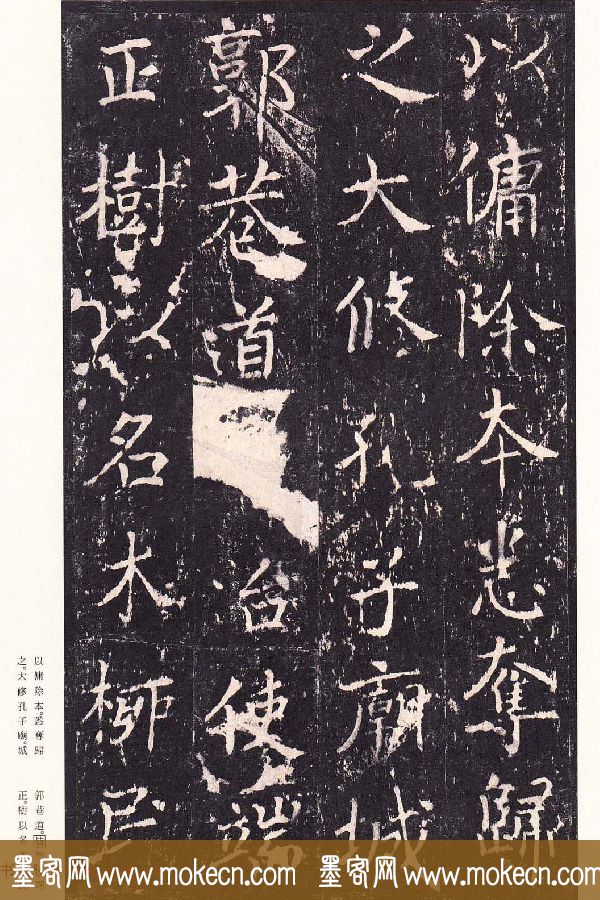 以傭除本悉奪歸
之大修孔子廟城
郭巷道治使端
正樹以名木柳民
以傭除本。悉奪歸
之。大修孔子廟。城
郭巷道
正。樹以名
墨客网 www.mokecn.com 墨客网 www.mokecn.com